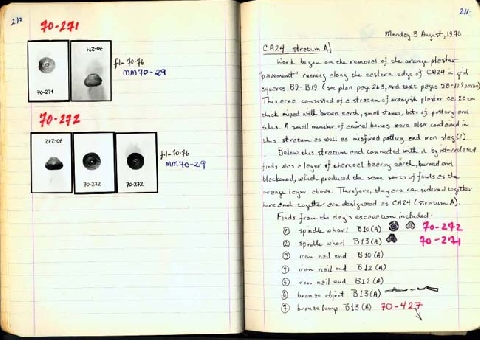 210
70-271
70-271
fil-70-96
MM70-29
70-272
70-272
70-272
fil-70-96
MM70-29
211
Monday 3 August, 1970
CA24 stratum A]
Work began on the removal of the orange plaster
"pavement" running along the eastern edge of CA24 in grid
squares
This area consisted of a stratum of orangish plaster
thick mixed with brown earth, small stones, bits of pottery and
tiles. A small number of animal bones were also contained in
this stratum as well as misfired pottery and iron slag
Below this stratum and connected with it by
finds was a layer of charcoal bearing earth, burned and
blackened, which produced the same types of finds as the
orange layer above. Therefore, they are considered together
here and together are designated as CA24 (stratum A).
Finds from the day's excavation included:
① spindle whorl B10 (A) 70-272
② spindle whorl B13 (A) 70-271
iron nail B10 (A)
iron nail B12 (A)
iron nail
bronze object B13 (A)
bronze B13 (A) 70-427